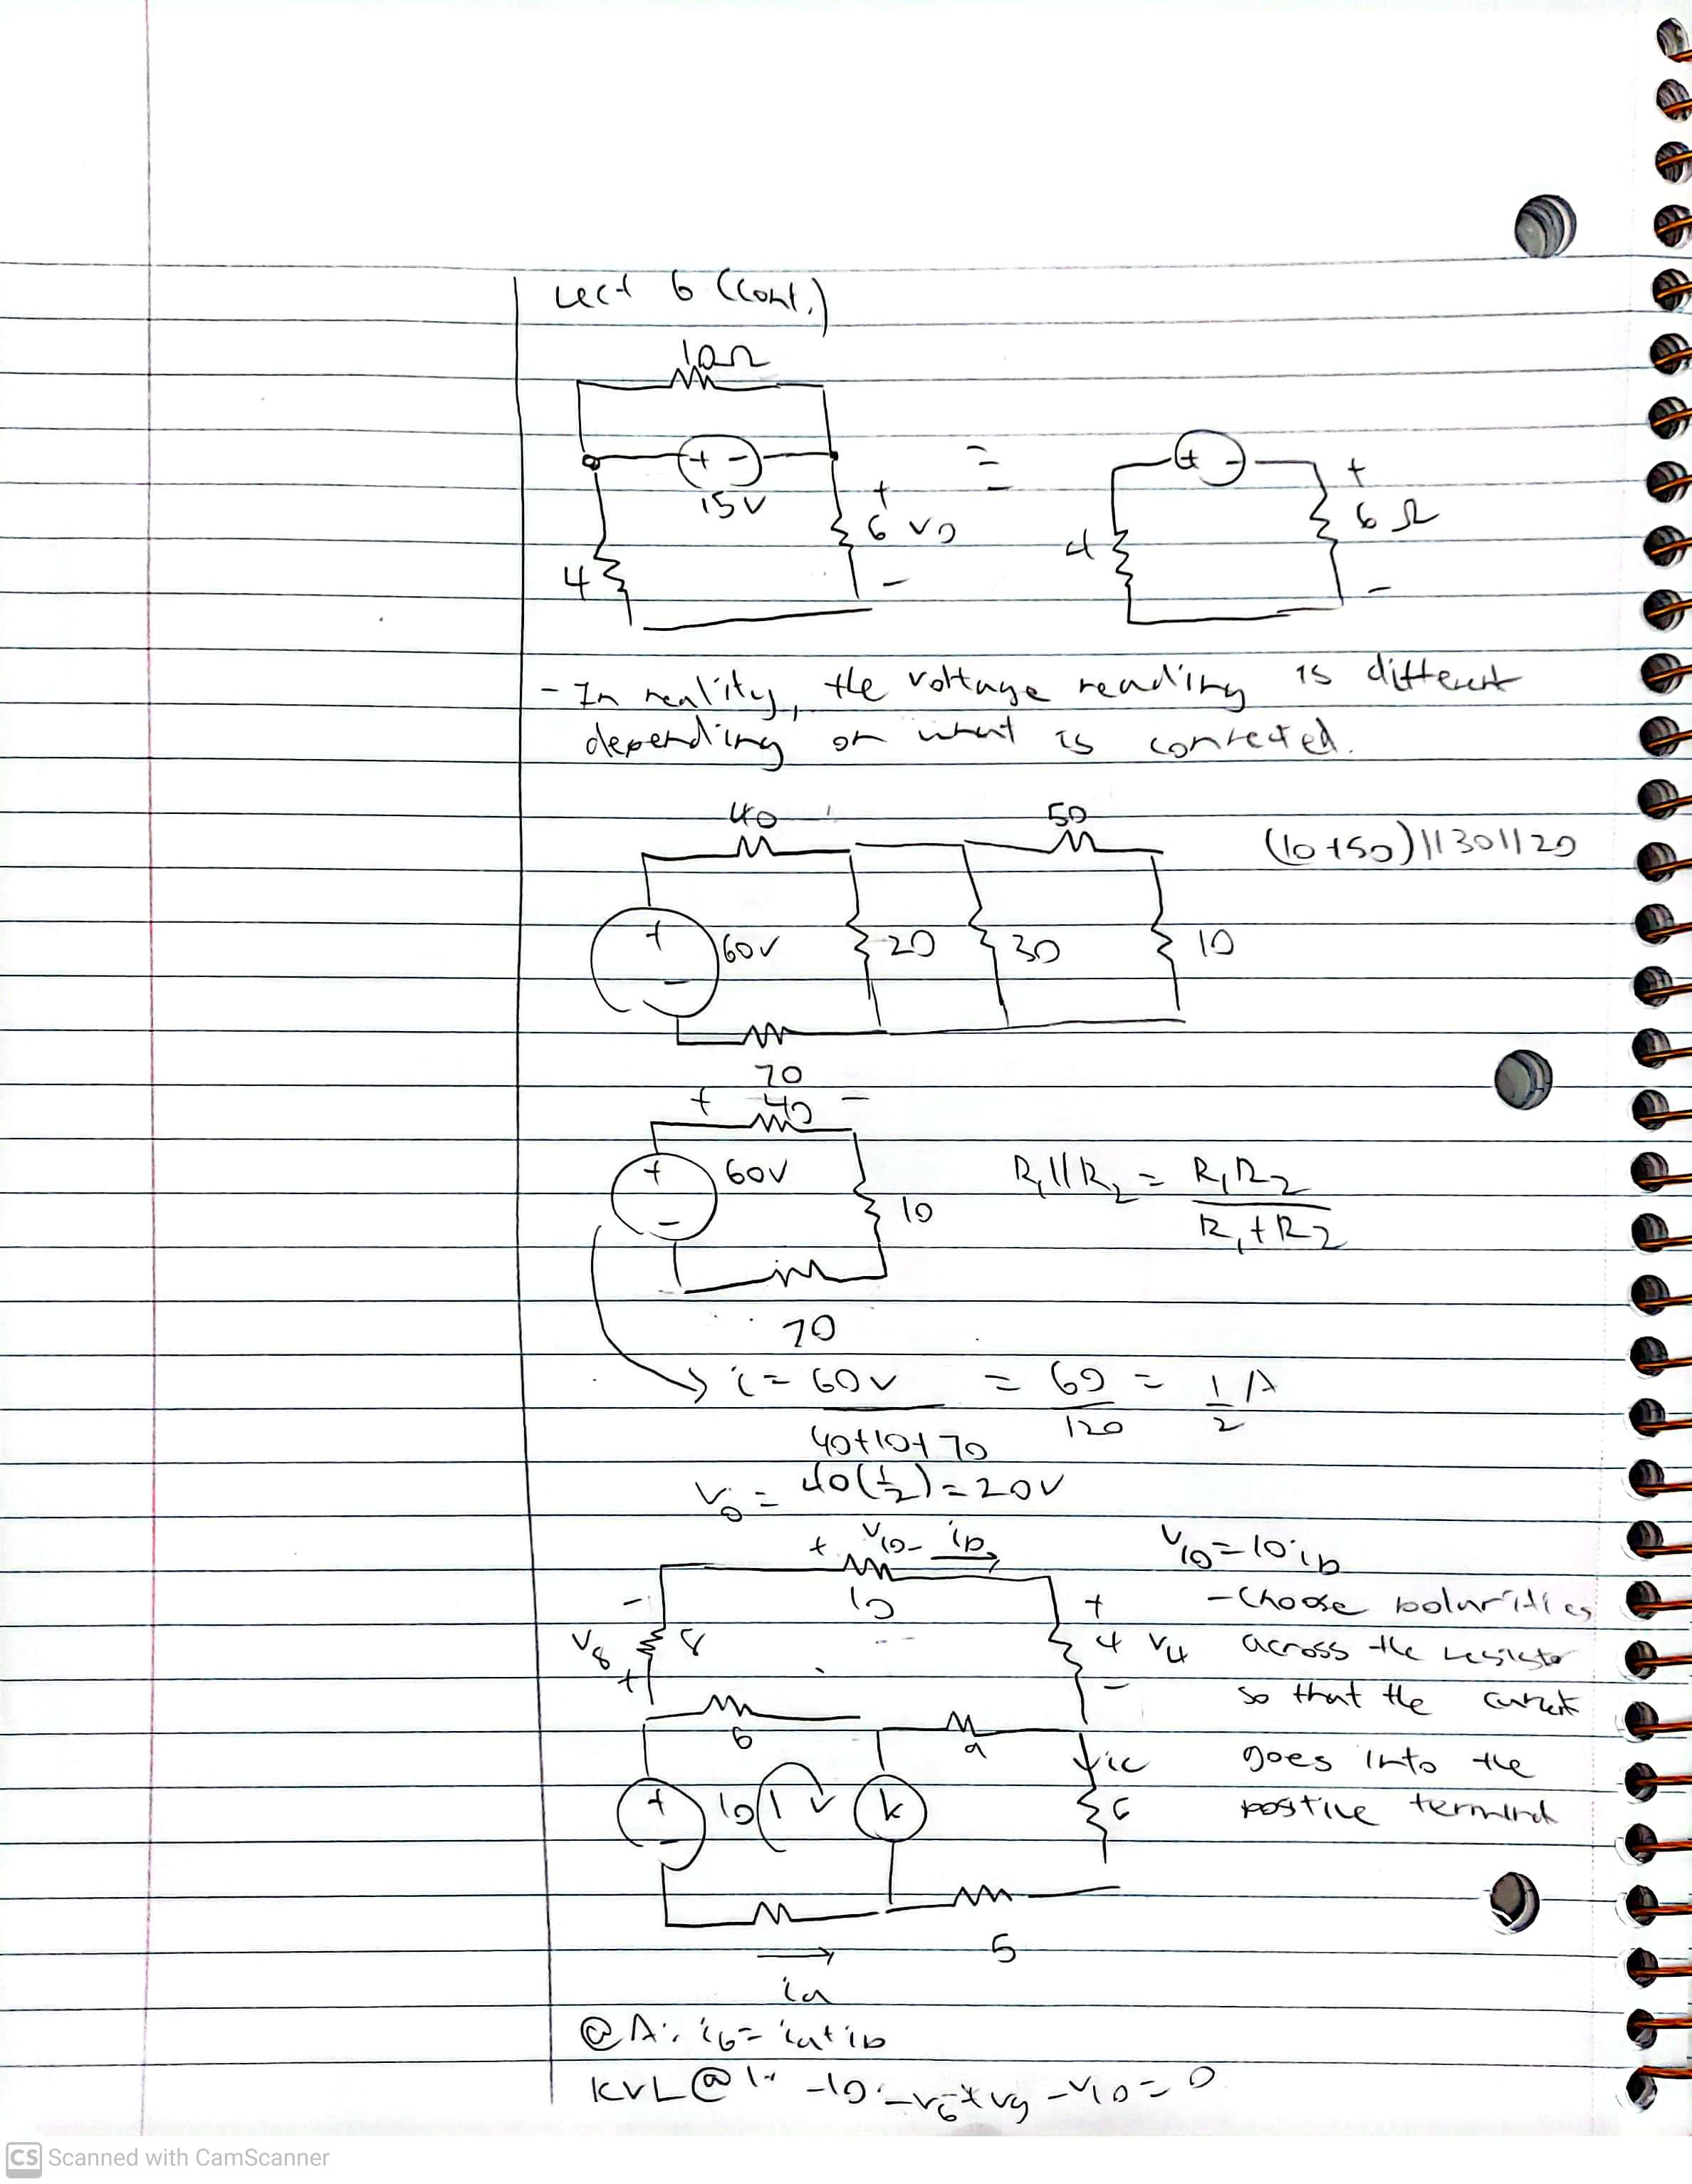 Lect 6 (cont.)
10Ω
+ -
15V
+
6 Vo
-
4
=
+ -
+
6 Ω
-
4
- In reality, the voltage reading is different
depending on what is connected.
40
50
(10+50)||30||20
+
-
60V
20
30
10
70
+ 40 -
+
-
60V
10
R1||R2 = R1R2
R1+R2
70
i = 60V = 60 = 1 A
40+10+70 120 2
Vo = 40(1/2) = 20V
+ V10 - ib
10
V10 = 10·ib
- Choose polarities
across the resistor
so that the current
goes into the
positive terminal
-
V8 8
+
+
4 V4
-
6
9
ic
+
-
10
1
k
6
5
ia
@A: i6 = ia+ib
KVL@1: -10 -V6 + V9 -V10 = 0
CS Scanned with CamScanner